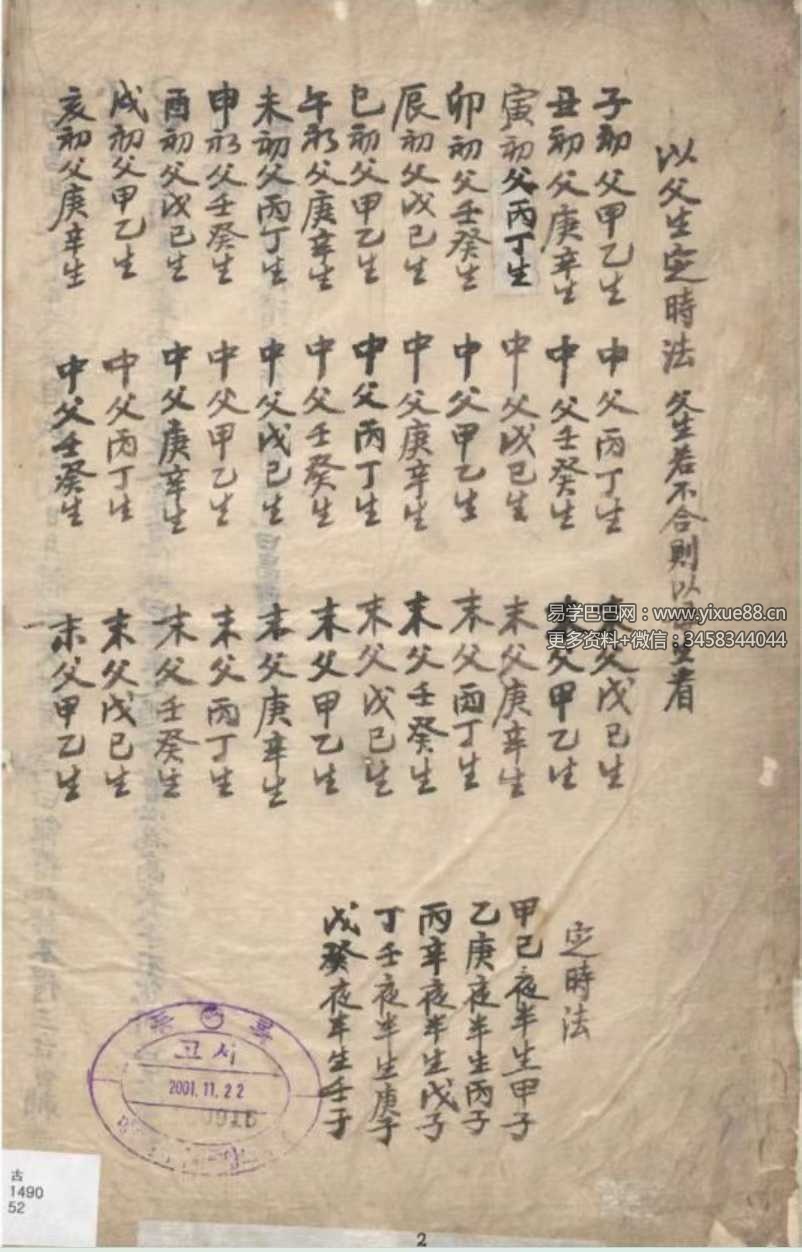 以父生定時法 父生若不合則以生者
子初父甲乙生 中父丙丁生 末父戊己生
丑初父庚辛生 中父壬癸生 末父甲乙生
寅初父丙丁生 中父戊己生 末父庚辛生
卯初父壬癸生 中父甲乙生 末父丙丁生
辰初父戊己生 中父庚辛生 末父壬癸生
巳初父甲乙生 中父丙丁生 末父戊己生
午初父庚辛生 中父壬癸生 末父甲乙生
未初父丙丁生 中父戊己生 末父庚辛生
申初父壬癸生 中父甲乙生 末父丙丁生
酉初父戊己生 中父庚辛生 末父壬癸生
戌初父甲乙生 中父丙丁生 末父戊己生
亥初父庚辛生 中父壬癸生 末父甲乙生
定時法
甲己夜半生甲子
乙庚夜半生丙子
丙辛夜半生戊子
丁壬夜半生庚子
戊癸夜半生壬子
易学巴巴网：www.yixue88.cn
更多资料+微信：3458344044
고서
2001.11.22
古
1490
52
2